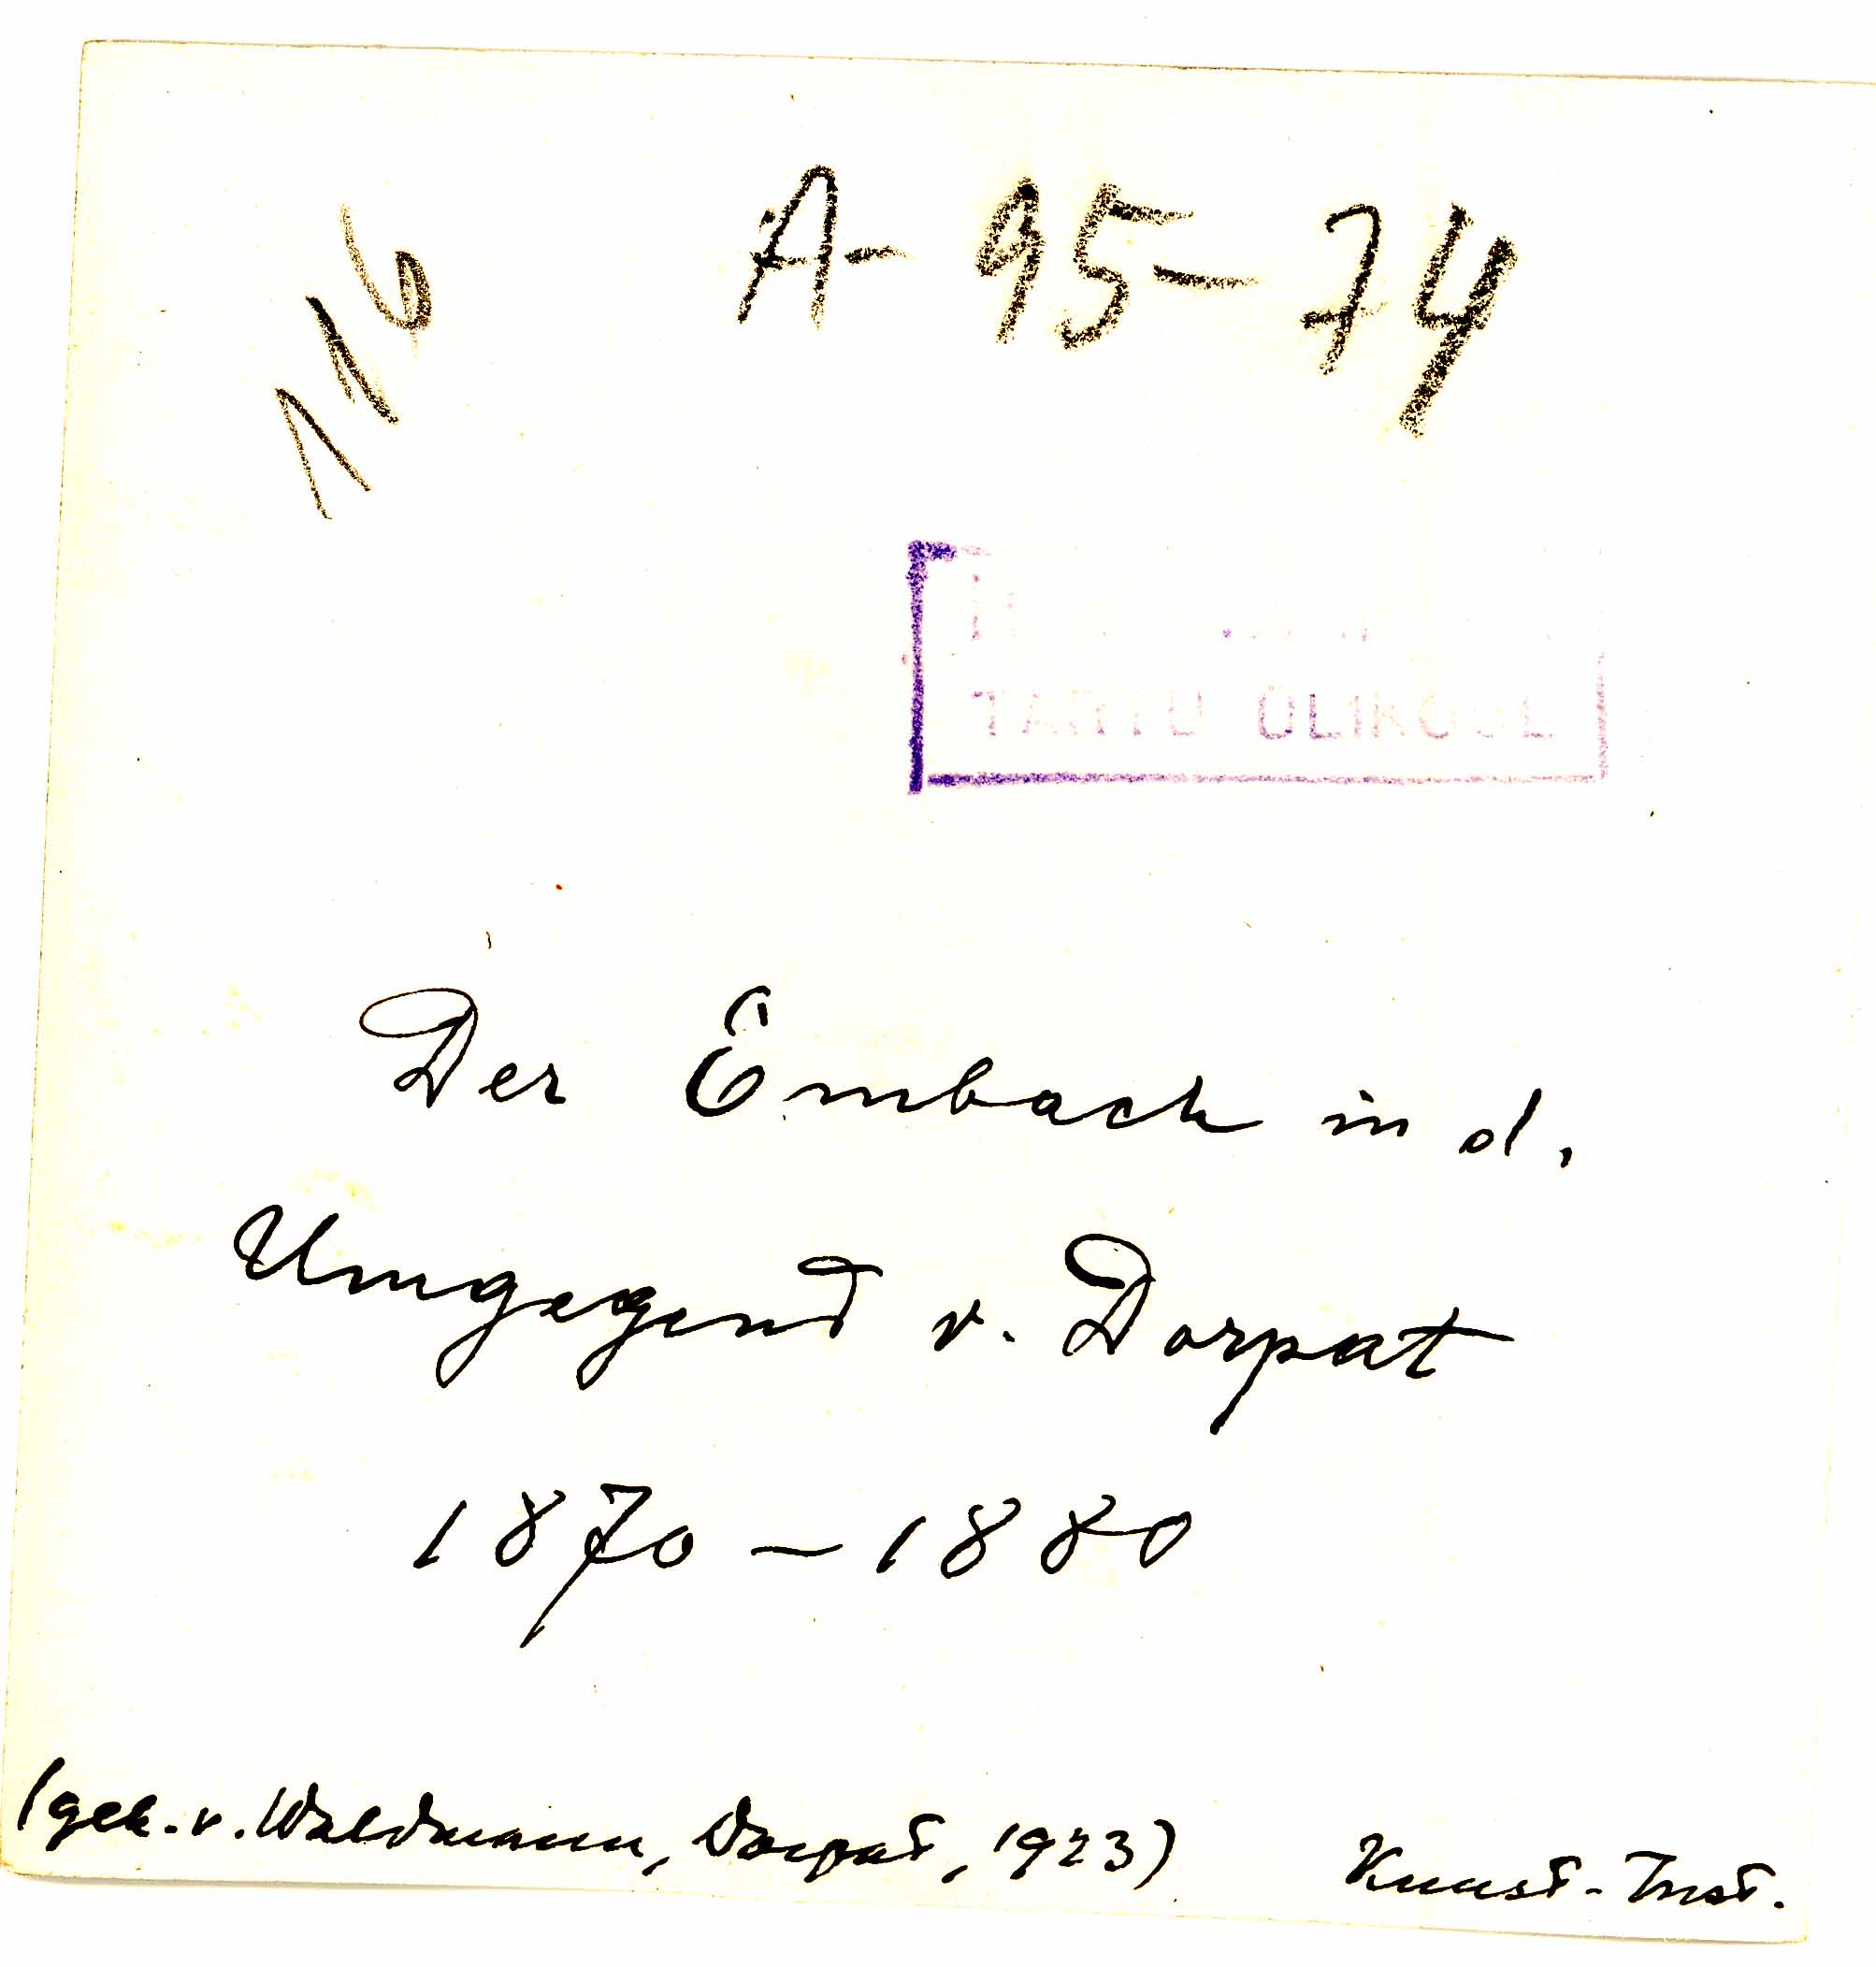 116
A-95-74
TARTU ÜLIKOOL
Der Embach in d.
Umgegend v. Dorpat
1870-1880
(gek. v. Waldmann, Dorpat, 1923)
Kunst-Inst.